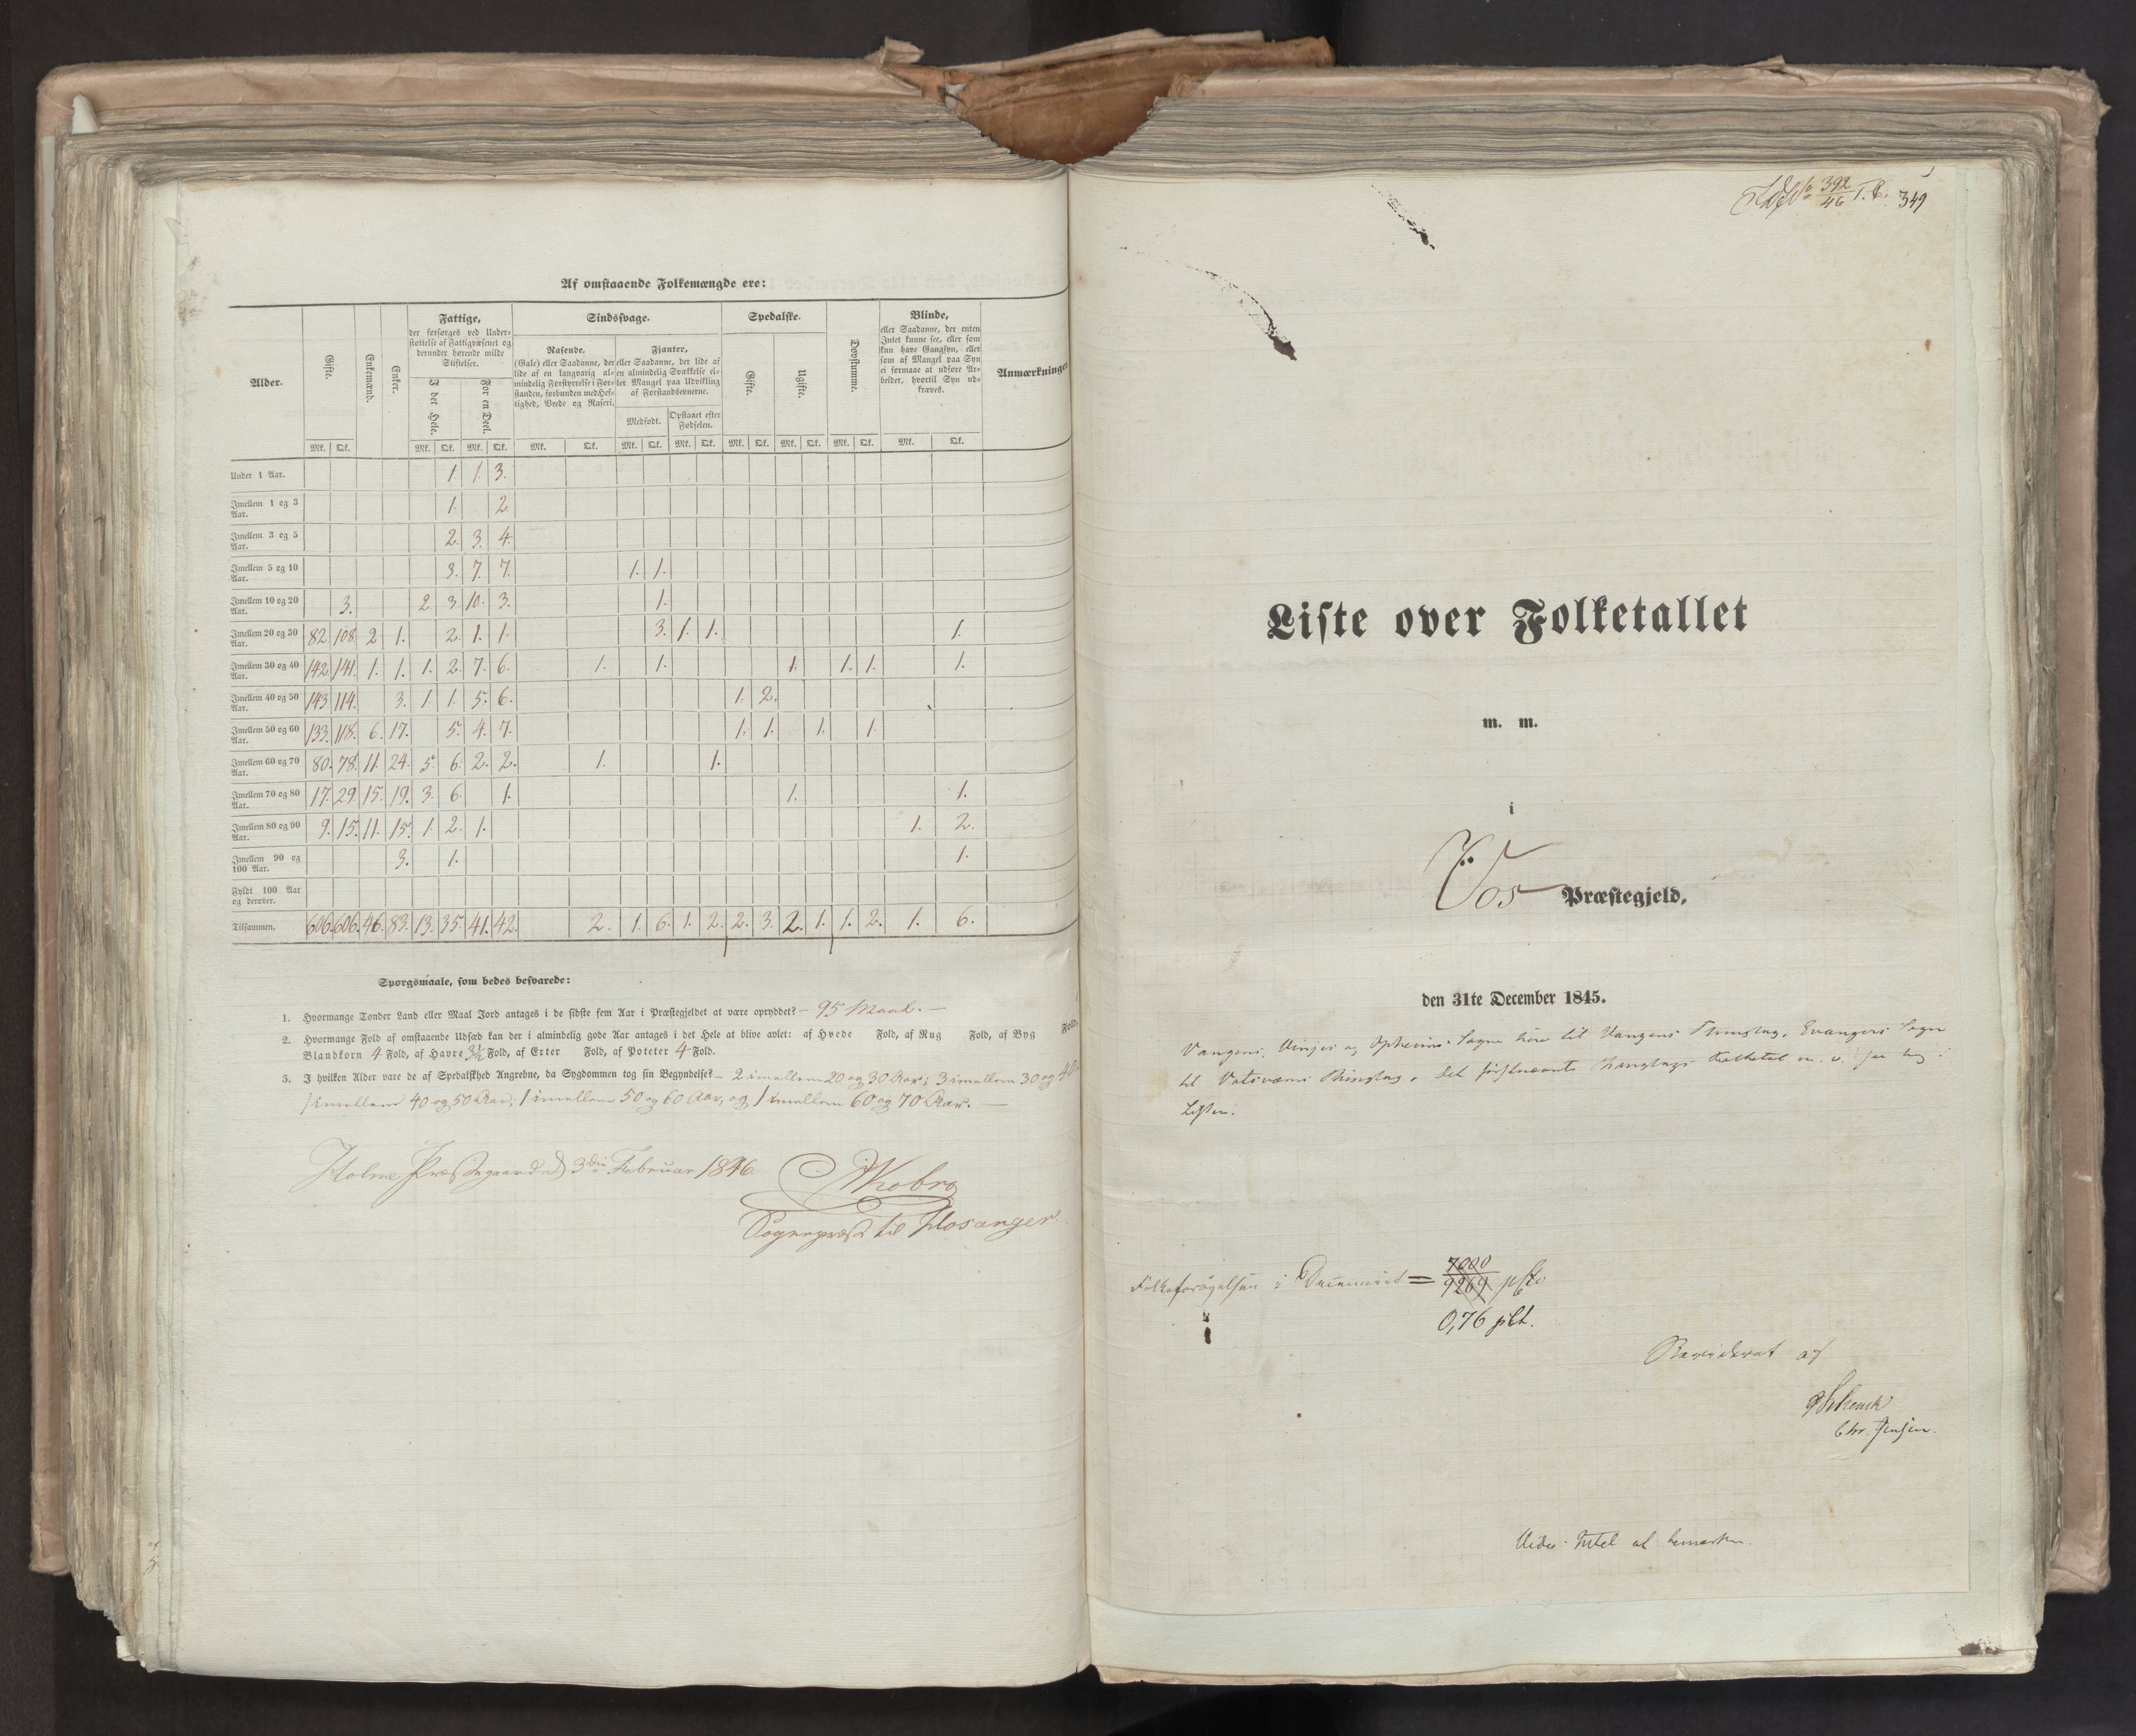 Af omstaaende Folkemængde ere:
Alder.
Gifte.
Enkemænd.
Enker.
Fattige,
der forsørges ved Under-
støttelse af Fattigvæsenet og
derunder hørende milde
Stiftelser.
I det Hele.
For en Deel.
Sindssvage.
Rasende,
(Gale) eller Saadanne, der
lide af en langvarig al-
mindelig Forstyrrelse i For-
standen, forbunden med Hef-
tighed, Vrede og Raseri.
Fjanter,
eller Saadanne, der lide af
en almindelig Svækkelse el-
ler Mangel paa Udvikling
af Forstandsevnerne.
Medfødt.
Opstaaet efter
Fødselen.
Spedalske.
Gifte.
Ugifte.
Døvstumme.
Blinde,
eller Saadanne, der enten
Intet kunne see, eller som
kun have Gangsyn, eller
som af Mangel paa Syn
ei formaae at udføre Ar-
beider, hvortil Syn ud-
kræves.
Anmærkninger
Mk. Qk. Mk. Qk. Mk. Qk. Mk. Qk. Mk. Qk. Mk. Qk. Mk. Qk. Mk. Qk. Mk. Qk. Mk. Qk.
Under 1 Aar. 1. 1. 3.
Imellem 1 og 3 Aar. 1. 2.
Imellem 3 og 5 Aar. 2. 3. 4.
Imellem 5 og 10 Aar. 3. 7. 7. 1. 1.
Imellem 10 og 20 Aar. 3. 2. 3. 10. 3. 1.
Imellem 20 og 30 Aar. 82. 108. 2 1. 2. 1. 1. 3. 1. 1. 1.
Imellem 30 og 40 Aar. 142. 141. 1. 1. 1. 2. 7. 6. 1. 1. 1. 1. 1. 1.
Imellem 40 og 50 Aar. 143 114. 3. 1 1. 5. 6. 1. 2.
Imellem 50 og 60 Aar. 133. 118. 6. 17. 5. 4. 7. 1. 1. 1. 1.
Imellem 60 og 70 Aar. 80. 78. 11. 24. 5. 6. 2. 2. 1. 1.
Imellem 70 og 80 Aar. 17. 29. 15. 19. 3. 6. 1. 1. 1.
Imellem 80 og 90 Aar. 9. 15. 11. 15. 1. 2. 1. 1. 2.
Imellem 90 og 100 Aar. 3. 1. 1.
Fyldt 100 Aar og derover.
Tilsammen. 606. 606. 46. 83. 13. 35. 41. 42. 2. 1. 6. 1. 2. 2. 3. 2. 1. 1. 2. 1. 6.
Spørgsmaale, som bedes besvarede:
1. Hvormange Tønder Land eller Maal Jord antages i de sidste fem Aar i Præstegjeldet at være opryddet? – 95 Maal. –
2. Hvormange Fold af omstaaende Udsæd kan der i almindelig gode Aar antages i det Hele at blive avlet: af Hvede Fold, af Rug Fold, af Byg Fold,
Blandkorn 4 Fold, af Havre 3½ Fold, af Erter Fold, af Poteter 4 Fold.
3. I hvilken Alder vare de af Spedalskhed Angrebne, da Sygdommen tog sin Begyndelse? – 2 imellem 20 og 30 Aar; 3 imellem 30 og 40
1 imellem 40 og 50 Aar; 1 imellem 50 og 60 Aar, og 1 imellem 60 og 70 Aar. –
Holme Præstegaard d 3die Februar 1846
Kobro
Sognepræst til Hosanger
392
46
349
Liste over Folketallet
m. m.
i
Vos Præstegjeld,
den 31te December 1845.
Vangens, Vinjes og Opheims Sogne høre til Vangens Thinglag, Evangers Sogn
til Thinglag, det Thinglags Folketal m. v. see
Listen.
Folkeforøgelsen i Decenniet = 7000
9269 pCto
0,76 pCt.
Revideret af
Chr. Jensen.
Videre Intet at bemærke.